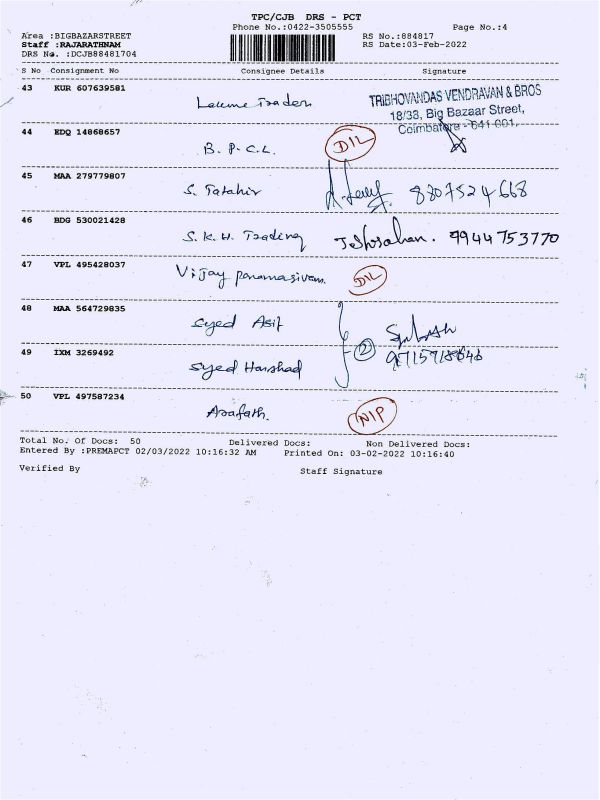 TPC/CJB DRS - PCT
Phone No.:0422-3505555 Page No.:4
Area :BIGBAZARSTREET RS No.:884817
Staff :RAJARATHNAM RS Date:03-Feb-2022
DRS No. :DCJB88481704
S No Consignment No Consignee Details Signature
43 KUR 607639581 Laxume Traders TRIBHOVANDAS VENDRAVAN & BROS
18/33, Big Bazaar Street,
Coimbatore - 641 001.
44 EDQ 14868657 B. P. C. L. DIL
45 MAA 279779807 S. Tatahir 8807524668
46 BDG 530021428 S. K. H. Trading 9944753770
47 VPL 495428037 Vijay paramasivam. DIL
48 MAA 564729835 Syed Asif
49 IXM 3269492 Syed Harshad 2
50 VPL 497587234 Arafath. NIP
Total No. Of Docs: 50 Delivered Docs: Non Delivered Docs:
Entered By :PREMAPCT 02/03/2022 10:16:32 AM Printed On: 03-02-2022 10:16:40
Verified By Staff Signature